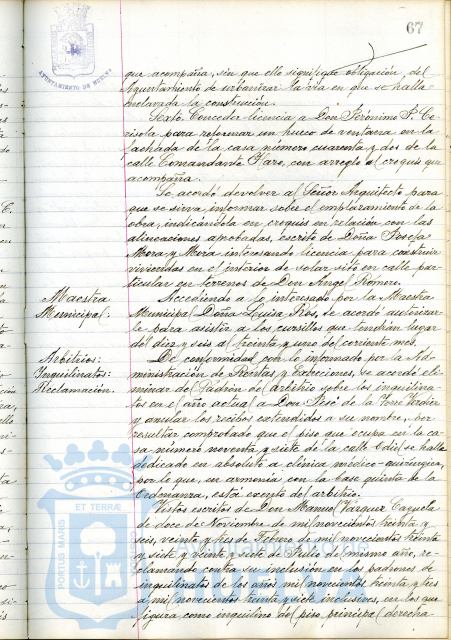 67
AYUNTAMIENTO DE HUELVA
que acompaña, sin que ello signifique obligación del
Ayuntamiento de urbanizar la vía en que se halla
enclavada la construcción.
Sexto. Conceder licencia a Don Jerónimo P. Ce-
risola para reformar un hueco de ventana en la
fachada de la casa número cuarenta y dos de la
calle Comandante Haro, con arreglo al croquis que
acompaña.
Se acordó devolver al Señor Arquitecto para
que se sirva informar sobre el emplazamiento de la
obra, indicándola en croquis en relación con las
alineaciones aprobadas, escrito de Doña Josefa
Mora y Mora interesando licencia para construir
viviendas en el interior de solar sito en calle par-
ticular en terrenos de Don Angel Romero.
Maestra
Municipal.
Accediendo a lo interesado por la Maestra
Municipal Doña Luisa Ros, se acordó autorizar-
le para asistir a los cursillos que tendrán lugar
del diez y seis al treinta y uno del corriente mes.
Arbitrios:
Inquilinatos:
Reclamación.
De conformidad con lo informado por la Ad-
ministración de Rentas y Exacciones, se acordó eli-
minar del Padrón del arbitrio sobre los inquilina-
tos en el año actual a Don José de la Torre
y anular los recibos extendidos a su nombre, por
resultar comprobado que el piso que ocupa en la ca-
sa número noventa y siete de la calle se halla
dedicado en absoluto a clínica médico-quirúrgica,
por lo que, en armonía con la base quinta de la
Ordenanza, está exento del arbitrio.
Vistos escritos de Don Manuel Vázquez
de doce de Noviembre de mil novecientos treinta y
seis, veinte y tres de Febrero de mil novecientos treinta
y siete y veinte y siete de Julio del mismo año, re-
clamando contra su inclusión en los padrones de
inquilinatos de los años mil novecientos treinta y tres
a mil novecientos treinta y siete inclusives, en los que
figura como inquilino del piso principal derecha
PORTUS MARIS
ET TERRÆ